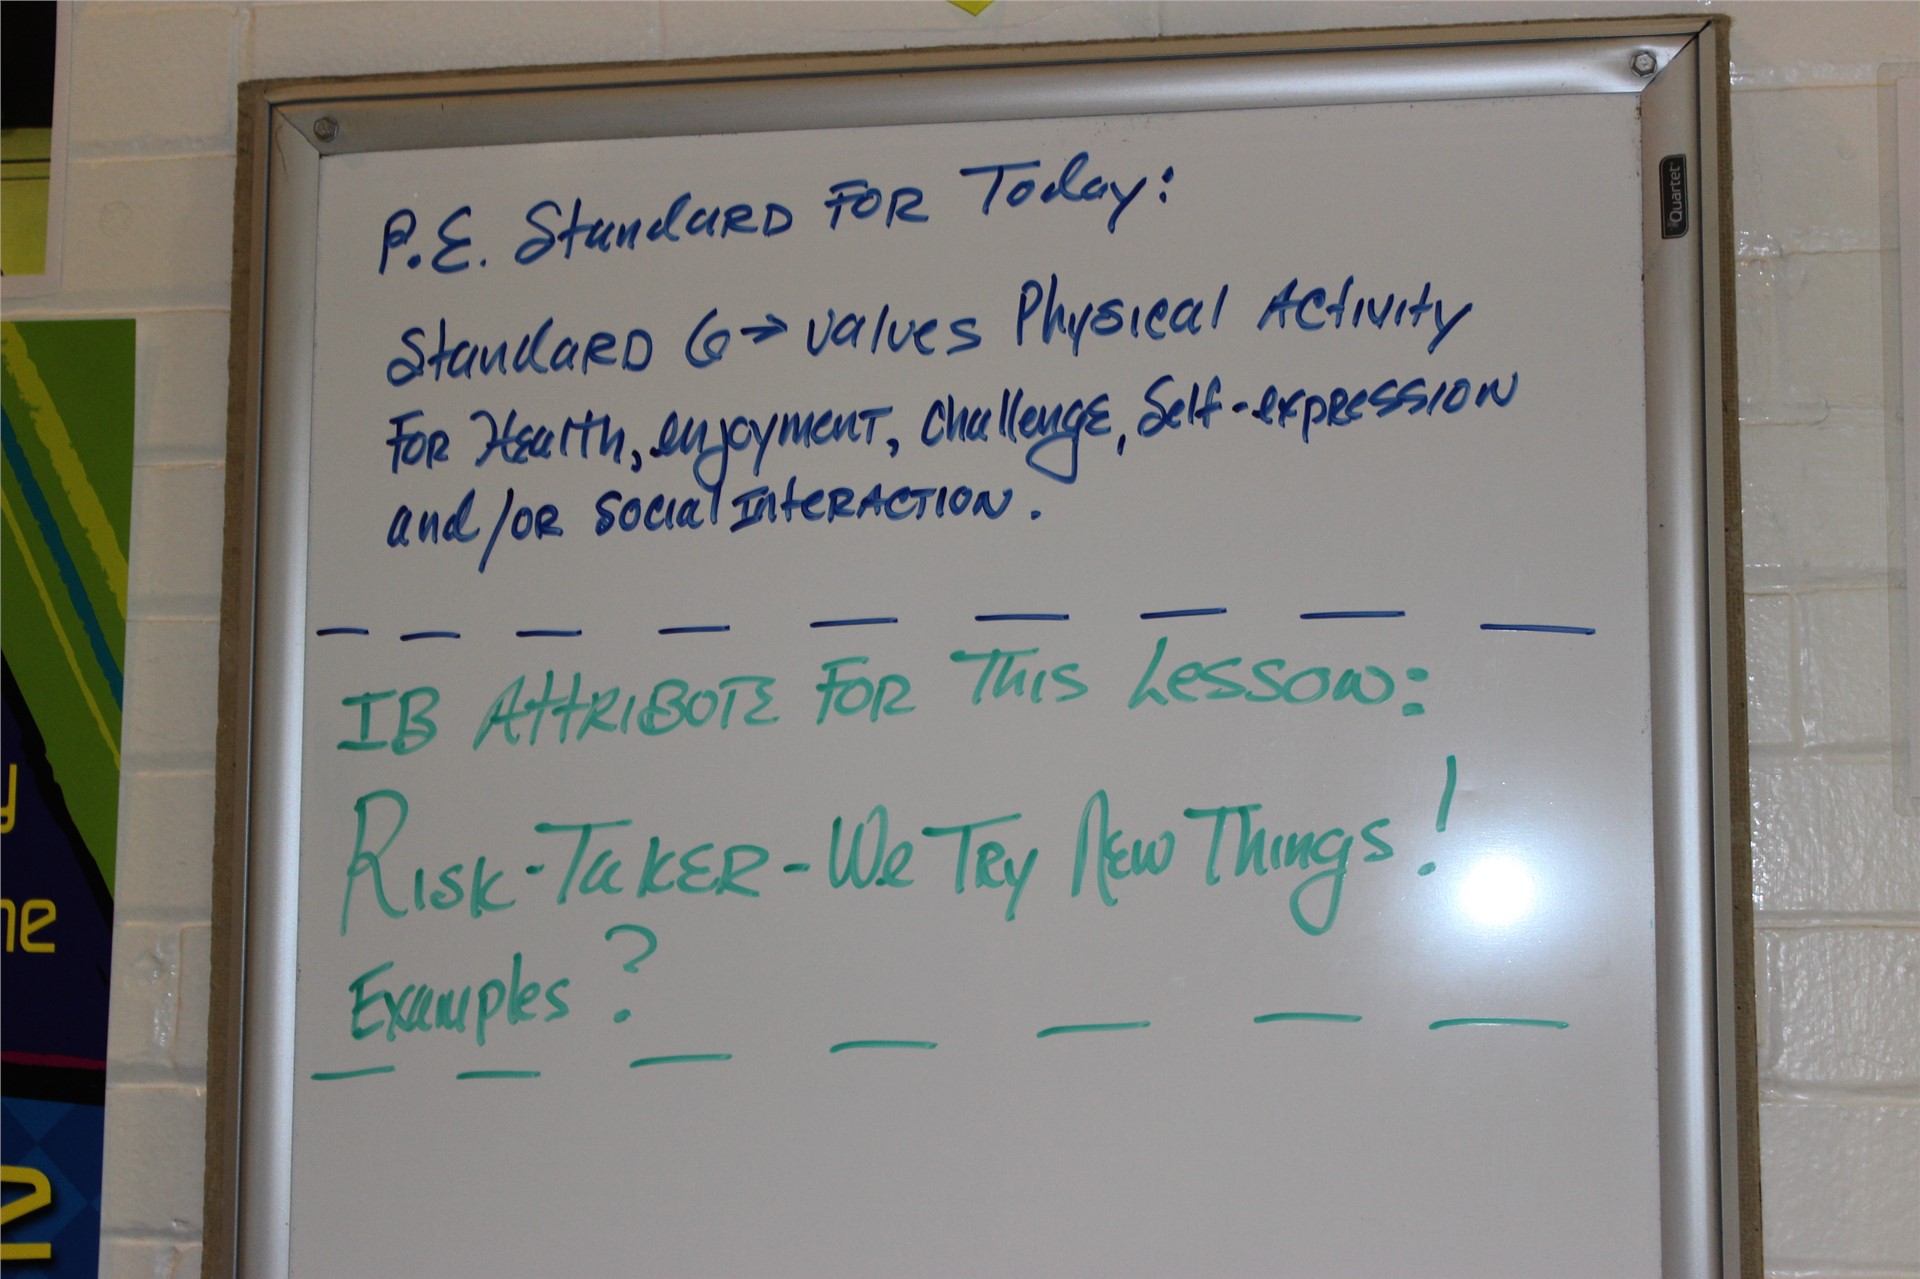 P.E. Standard For Today:
Standard 6→ values Physical Activity
For Health, enjoyment, challenge, Self-expression
and/or social Interaction.
IB Attribute For This Lesson:
Risk-Taker - We Try New Things!
Examples?
Quartet